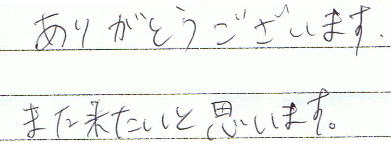 ありがとうございます.
また来たいと思います。